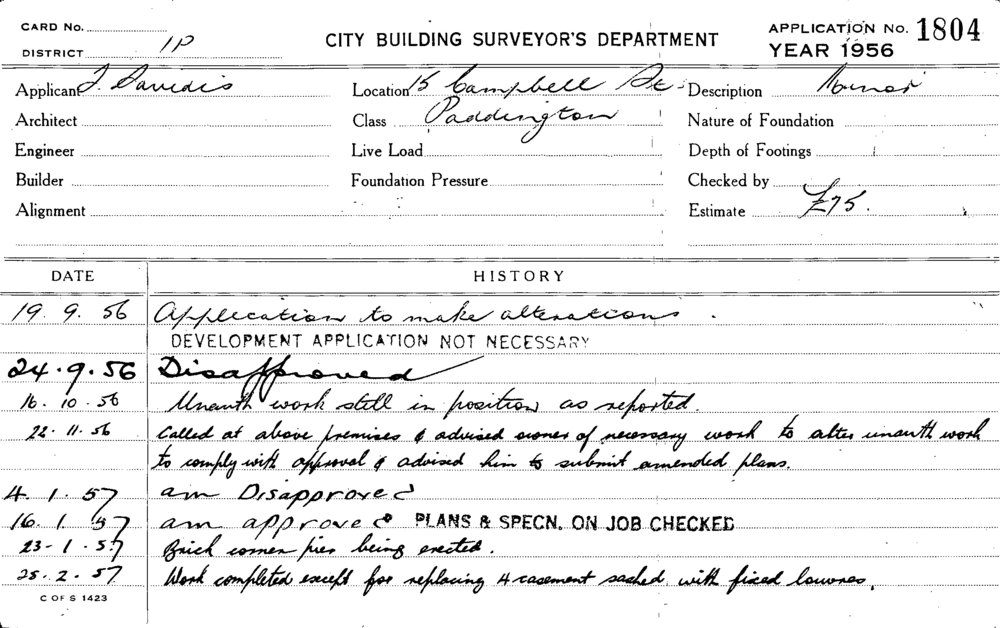 CARD No.
DISTRICT 1P
CITY BUILDING SURVEYOR'S DEPARTMENT
APPLICATION No. 1804
YEAR 1956
Applicant J. Davidis
Location 15 Campbell St.
Description Minor
Architect
Class Paddington
Nature of Foundation
Engineer
Live Load
Depth of Footings
Builder
Foundation Pressure
Checked by
Alignment
Estimate £75.
DATE HISTORY
19. 9. 56 Application to make alterations.
DEVELOPMENT APPLICATION NOT NECESSARY
24.9.56 Disapproved
16. 10. 56 Unauth work still in position as reported.
22. 11. 56 Called at above premises & advised owner of necessary work to alter unauth work
to comply with approval & advised him to submit amended plans.
4. 1. 57 am Disapproved
16. 1. 57 am approved PLANS & SPECN. ON JOB CHECKED
23-1.57 Brick corner pier being erected.
25.2.57 Work completed except for replacing 4 casement sashed with fixed louvres.
C OF S 1423